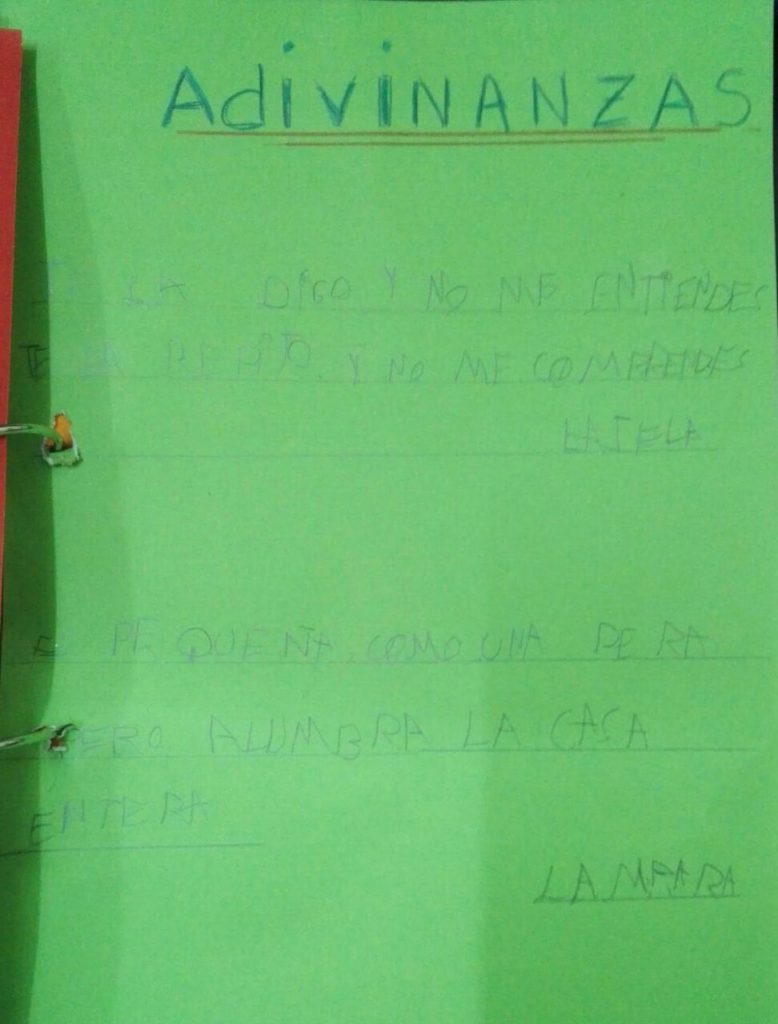 AdiViNANZAS
LA DIGO Y NO ME ENTIENDES
TE LA REPITO Y NO ME COMPRENDES
LA TELA
PEQUEÑA COMO UNA PERA
PERO ALUMBRA LA CASA
ENTERA
LAMPARA